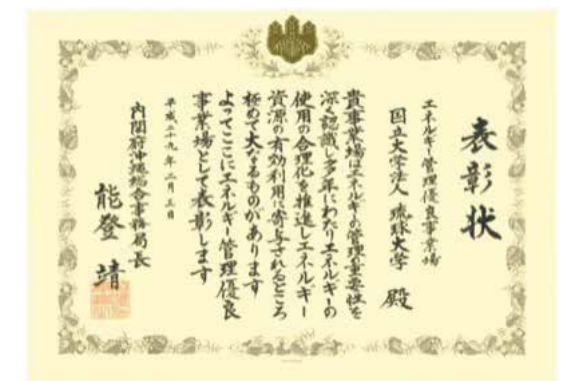 表彰状
エネルギー管理優良事業場
国立大学法人 琉球大学 殿
貴事業場はエネルギーの管理重要性を
深く認識し多年にわたりエネルギーの
使用の合理化を推進しエネルギー
資源の有効利用に寄与されるところ
極めて大なるものがあります
よってここにエネルギー管理優良
事業場として表彰します
平成二十九年二月三日
内閣府沖縄総合事務局長
能登 靖